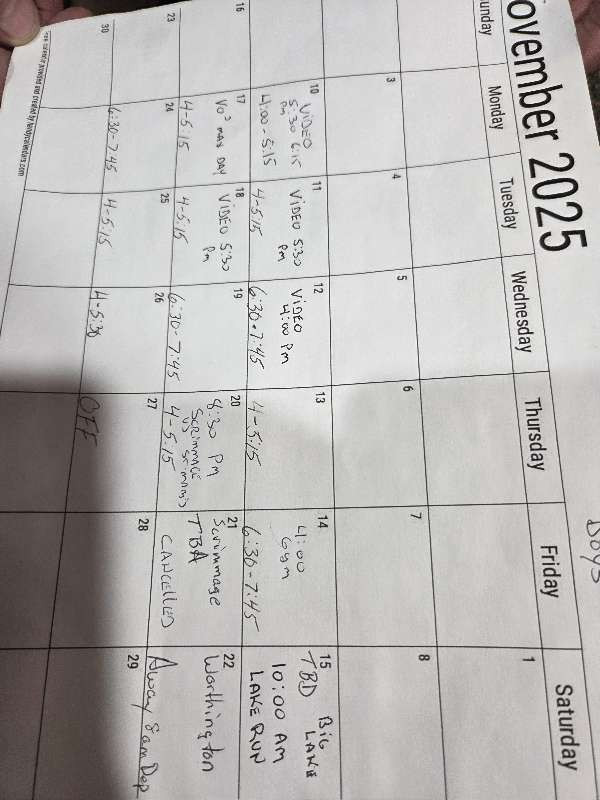 November 2025
Boys
Sunday Monday Tuesday Wednesday Thursday Friday Saturday
1
3 4 5 6 7 8
10
VIDEO
5:30 6:15
pm
4:00-5:15
11
VIDEO 5:30
pm
4-5:15
12
VIDEO
4:00 Pm
6:30-7:45
13
4-5:15
14
4:00
Gym
6:30-7:45
15
TBD BIG
LAKE
10:00 AM
LAKE RUN
16
17
VO² max DAY
4-5:15
18
VIDEO 5:30
Pm
4-5:15
19
6:30-7:45
20
8:30 PM
SCRIMMAGE
VS ST MARYS
4-5:15
21
Scrimmage
TBA
CANCELLED
22
Worthington
Away 8am Dep
23
24
6:30-7:45
25
4-5:15
26
4-5:30
27
OFF
28
29
30